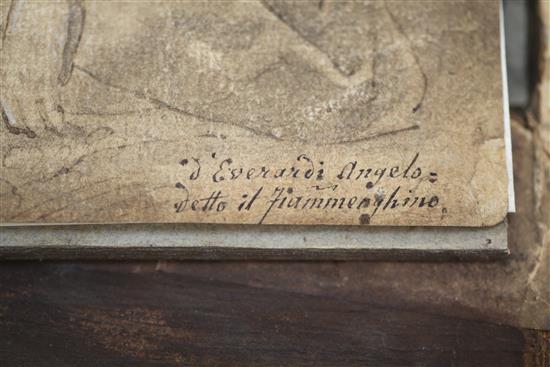 D'Everardi Angelo=
Detto il Fiam̃menghino.